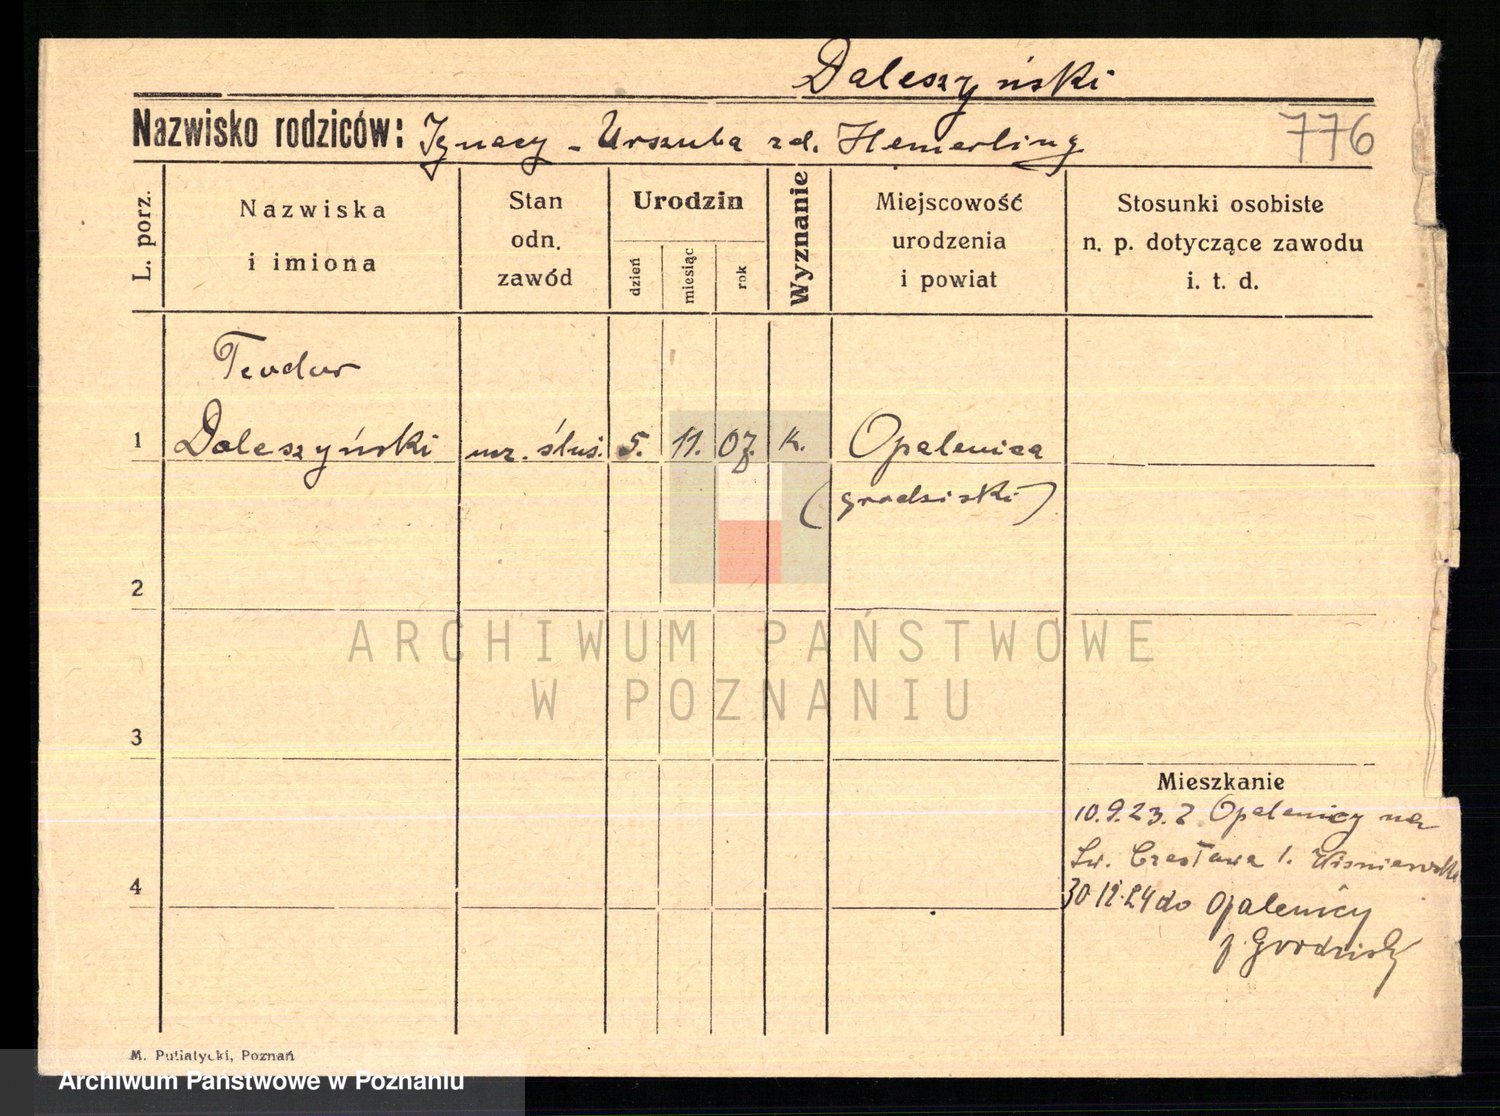 Daleszyński
Nazwisko rodziców: Ignacy - Urszula zd. Hemerling
776
L. porz.
Nazwiska
i imiona
Stan
odn.
zawód
Urodzin
dzień
miesiąc
rok
Wyznanie
Miejscowość
urodzenia
i powiat
Stosunki osobiste
n. p. dotyczące zawodu
i. t. d.
Teodor
1 Daleszyński ucz. ślus. 5. 11. 07. k. Opalenica
(grodziski)
2
ARCHIWUM PAŃSTWOWE
W POZNANIU
3
Mieszkanie
10.9.23. z Opalenicy na
Św. Czesława 1.
4
30.12.24 do Opalenicy
p. Grodzisk
M. Putiatycki, Poznań
Archiwum Państwowe w Poznaniu